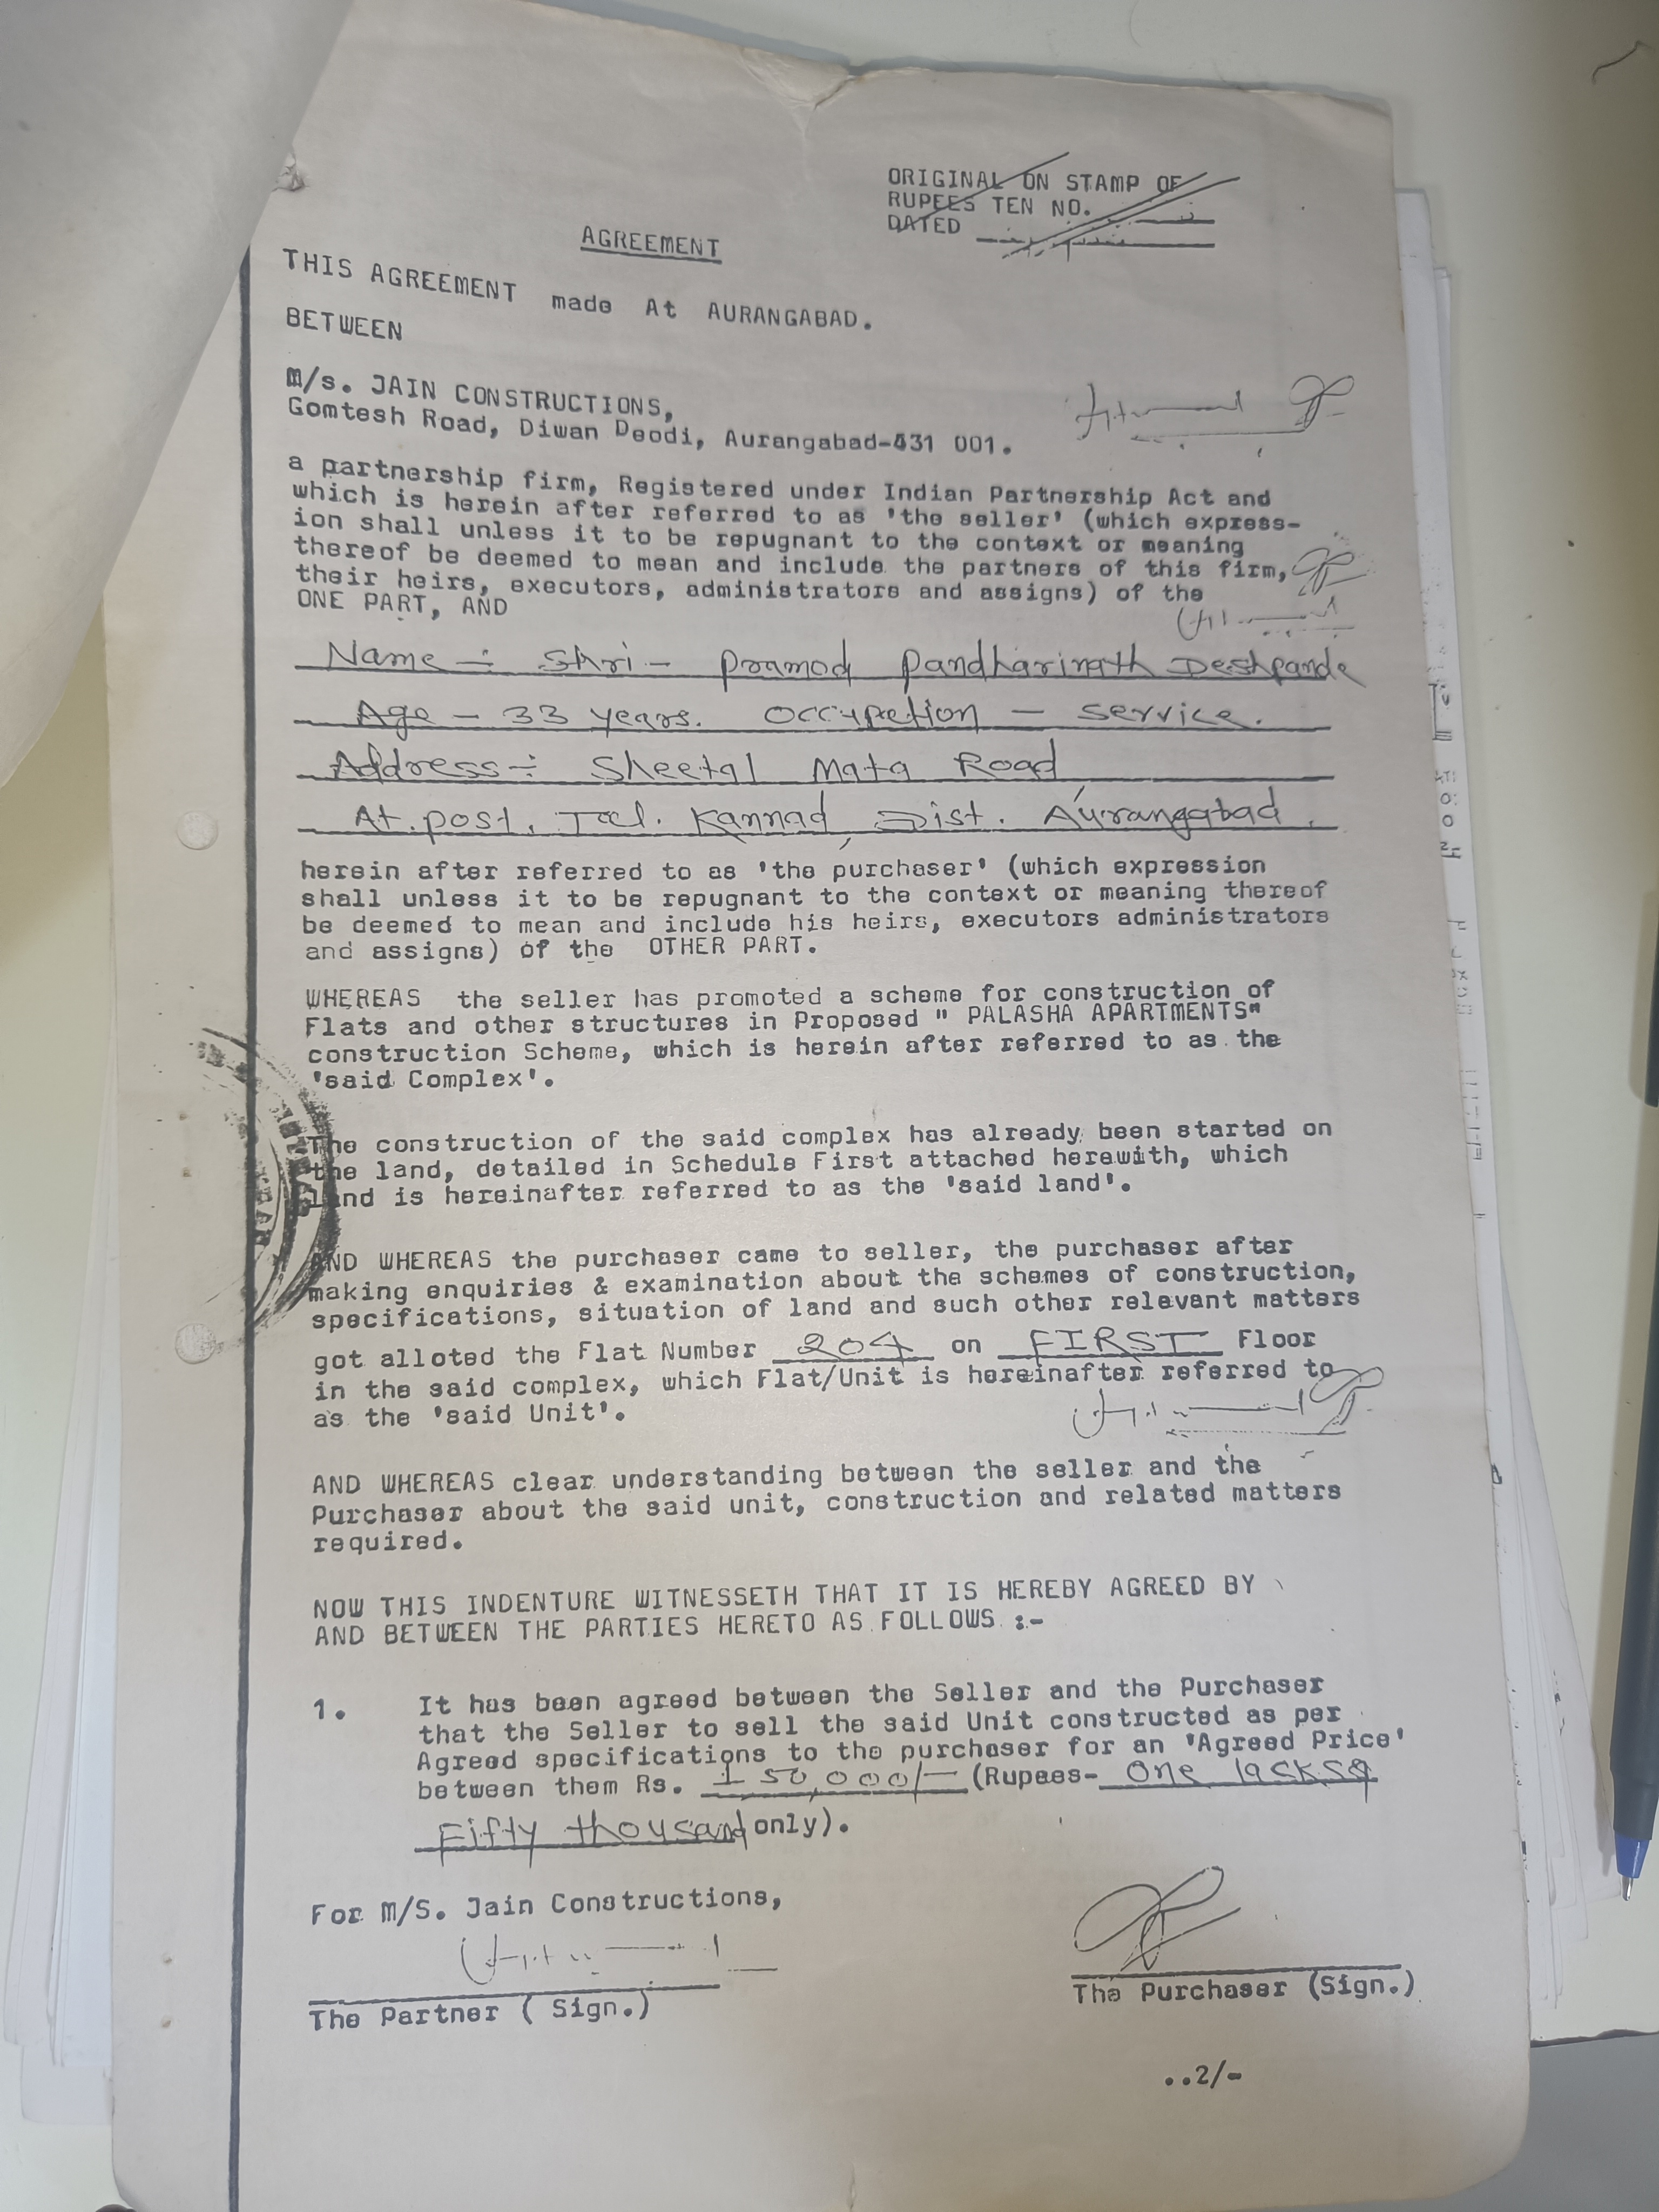 ORIGINAL ON STAMP OF
RUPEES TEN NO.
DATED
AGREEMENT
THIS AGREEMENT made At AURANGABAD.
BETWEEN
M/s. JAIN CONSTRUCTIONS,
Gomtesh Road, Diwan Deodi, Aurangabad-431 001.
a partnership firm, Registered under Indian Partnership Act and
which is herein after referred to as 'the seller' (which express-
ion shall unless it to be repugnant to the context or meaning
thereof be deemed to mean and include the partners of this firm,
their heirs, executors, administrators and assigns) of the
ONE PART, AND
Name :- Shri- Pramod Pandharinath Deshpande
Age - 33 years. Occupetion - service.
Address :- Sheetal Mata Road
At. post. Tal. Kannad, Dist. Aurangabad.
herein after referred to as 'the purchaser' (which expression
shall unless it to be repugnant to the context or meaning thereof
be deemed to mean and include his heirs, executors administrators
and assigns) of the OTHER PART.
WHEREAS the seller has promoted a scheme for construction of
Flats and other structures in Proposed " PALASHA APARTMENTS"
construction Scheme, which is herein after referred to as the
'said Complex'.
The construction of the said complex has already been started on
the land, detailed in Schedule First attached herewith, which
land is hereinafter referred to as the 'said land'.
AND WHEREAS the purchaser came to seller, the purchaser after
making enquiries & examination about the schemes of construction,
specifications, situation of land and such other relevant matters
got alloted the Flat Number 204 on FIRST Floor
in the said complex, which Flat/Unit is hereinafter referred to
as the 'said Unit'.
AND WHEREAS clear understanding between the seller and the
Purchaser about the said unit, construction and related matters
required.
NOW THIS INDENTURE WITNESSETH THAT IT IS HEREBY AGREED BY
AND BETWEEN THE PARTIES HERETO AS FOLLOWS :-
1. It has been agreed between the Seller and the Purchaser
that the Seller to sell the said Unit constructed as per
Agreed specifications to the purchaser for an 'Agreed Price'
between them Rs. 150,000/- (Rupees- One
Fifty thousand only).
For M/S. Jain Constructions,
The Partner ( Sign.)
The Purchaser (Sign.)
..2/-